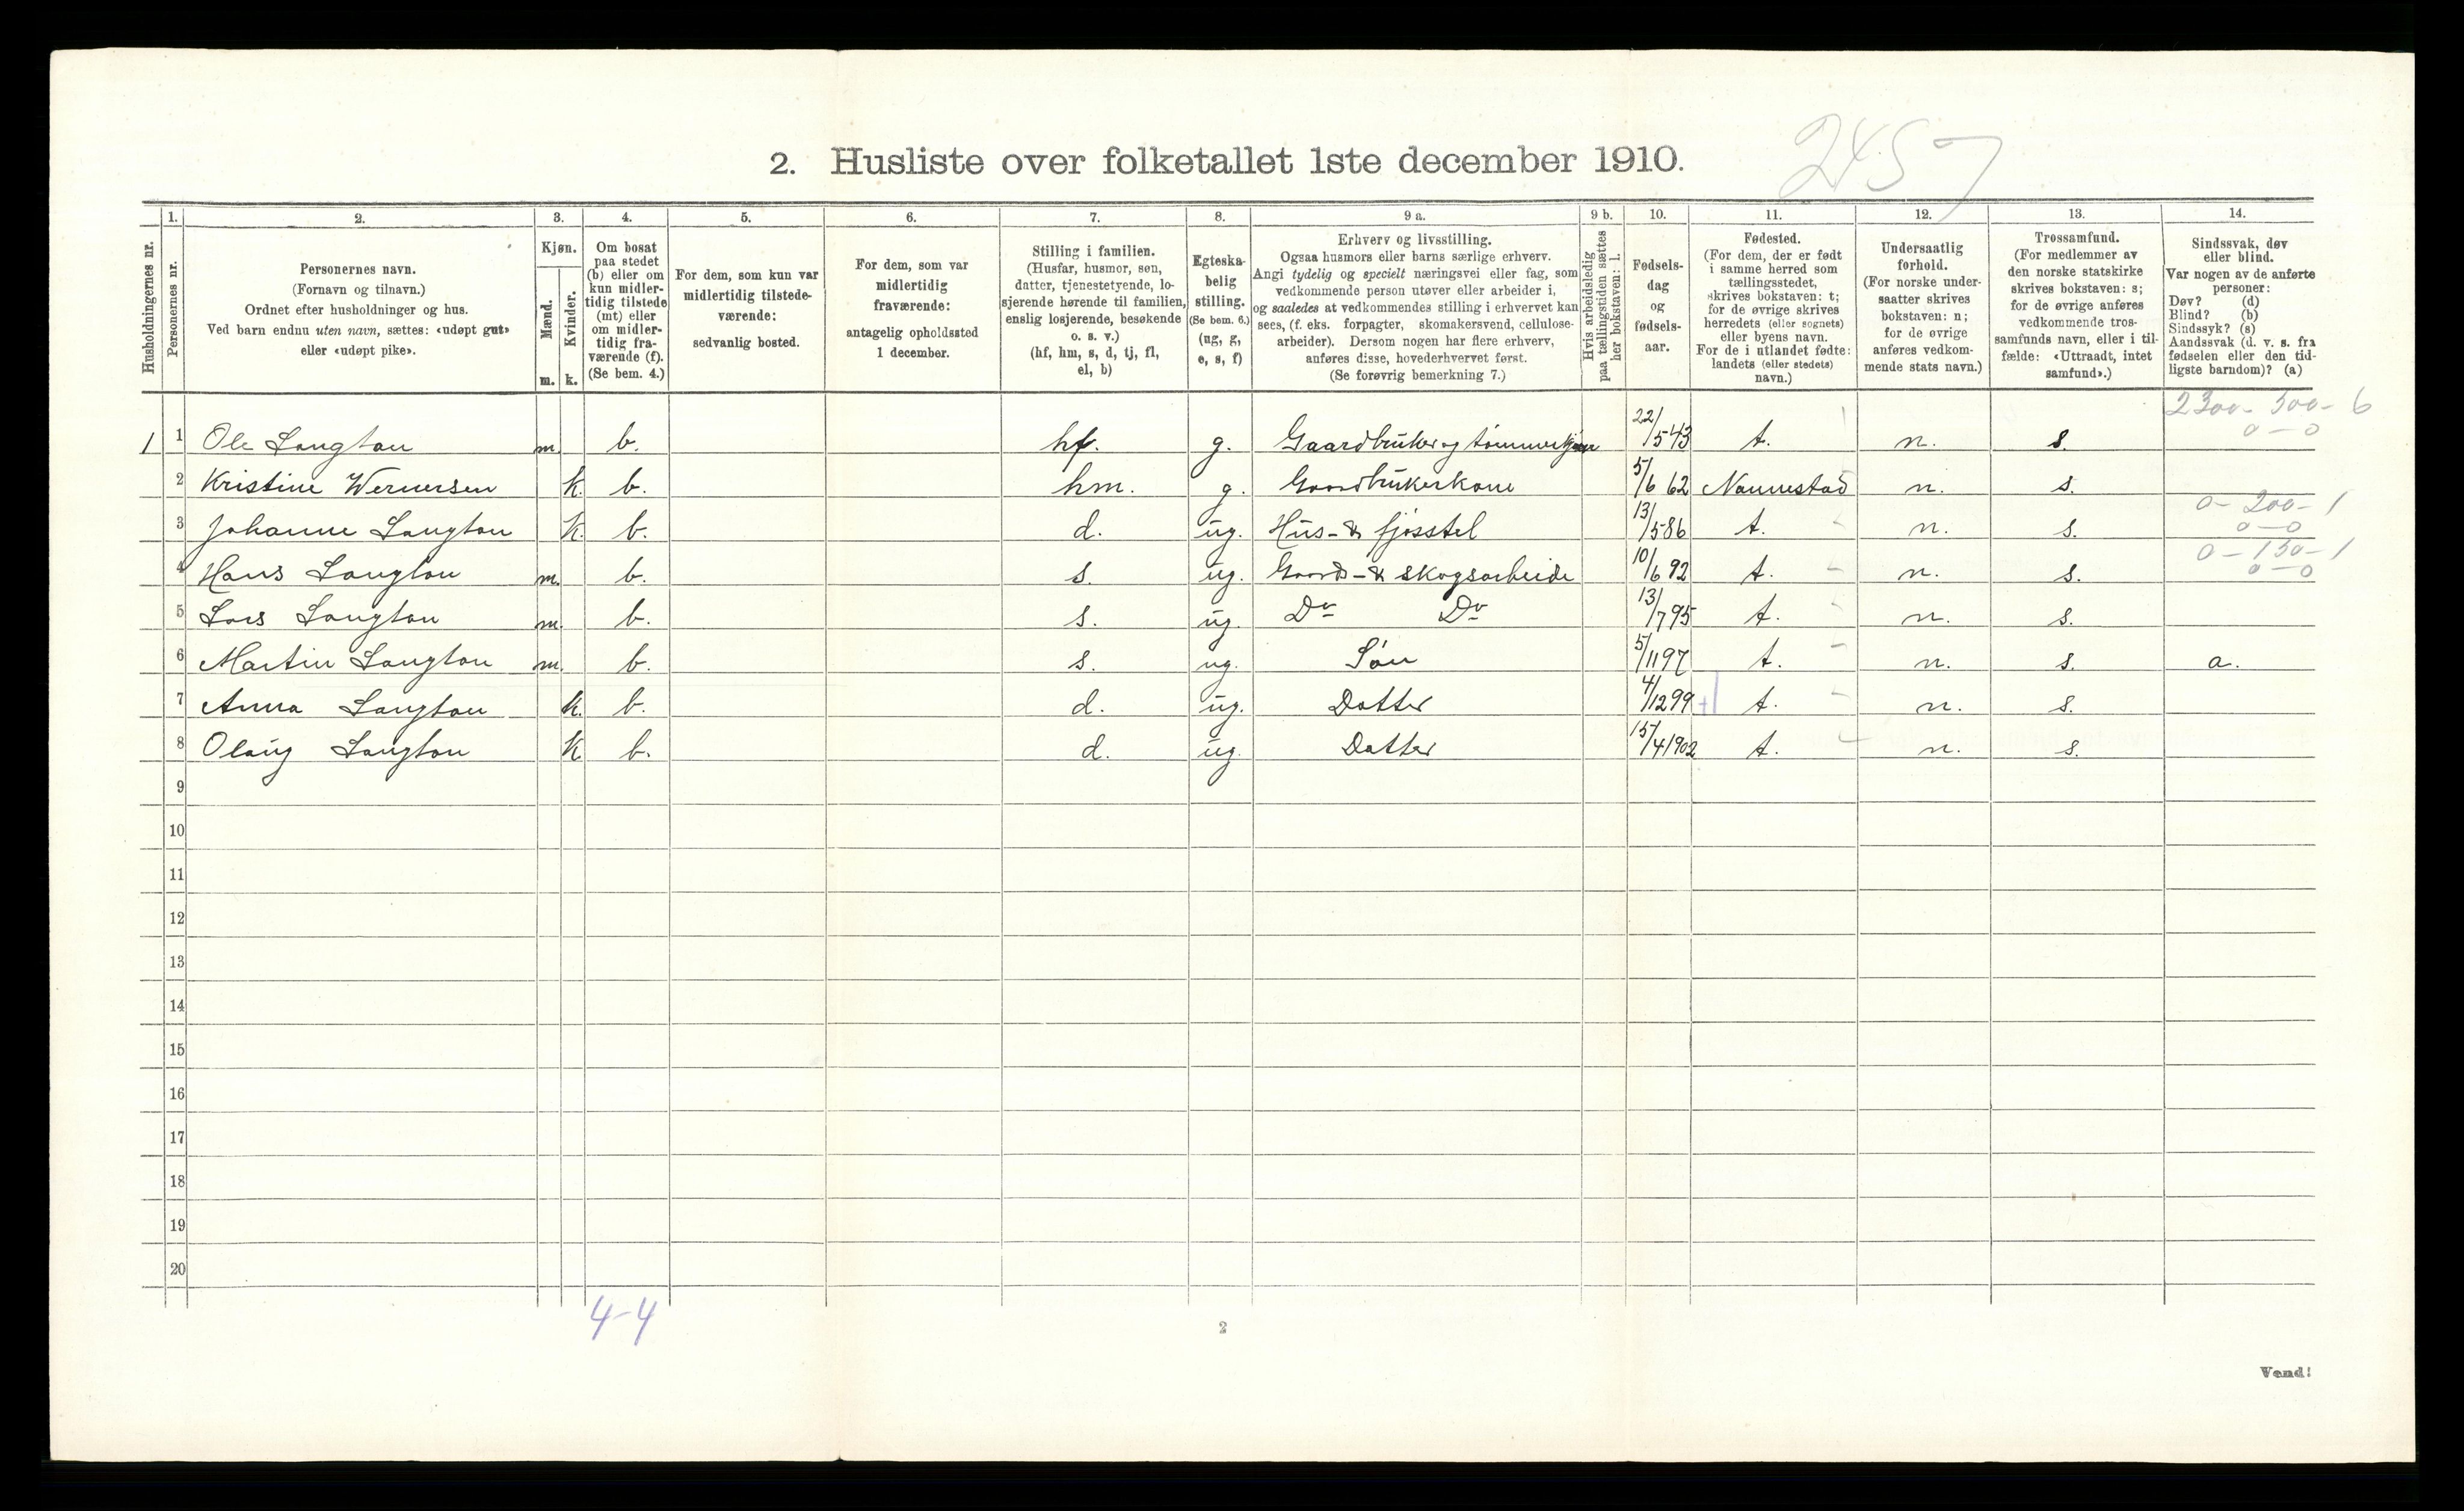 2457
2. Husliste over folketallet 1ste december 1910.
Husholdningernes nr.
1. 2. 3. 4. 5. 6. 7. 8. 9 a. 9 b. 10. 11. 12. 13. 14.
Personernes nr.
Personernes navn.
(Fornavn og tilnavn.)
Ordnet efter husholdninger og hus.
Ved barn endnu uten navn, sættes: «udøpt gut»
eller «udøpt pike».
Kjøn.
Mænd.
Kvinder.
m. k.
Om bosat
paa stedet
(b) eller om
kun midler-
tidig tilstede
(mt) eller
om midler-
tidig fra-
værende (f).
(Se bem. 4.)
For dem, som kun var
midlertidig tilstede-
værende:
sedvanlig bosted.
For dem, som var
midlertidig
fraværende:
antagelig opholdssted
1 december.
Stilling i familien.
(Husfar, husmor, søn,
datter, tjenestetyende, lo-
sjerende hørende til familien,
enslig losjerende, besøkende
o. s. v.)
(hf, hm, s, d, tj, fl,
el, b)
Egteska-
belig
stilling.
(Se bem. 6.)
(ug, g,
e, s, f)
Erhverv og livsstilling.
Ogsaa husmors eller barns særlige erhverv.
Angi tydelig og specielt næringsvei eller fag, som
vedkommende person utøver eller arbeider i,
og saaledes at vedkommendes stilling i erhvervet kan
sees, (f. eks. forpagter, skomakersvend, cellulose-
arbeider). Dersom nogen har flere erhverv,
anføres disse, hovederhvervet først.
(Se forøvrig bemerkning 7.)
Hvis arbeidsledig
paa tællingstiden sættes
her bokstaven: l.
Fødsels-
dag
og
fødsels-
aar.
Fødested.
(For dem, der er født
i samme herred som
tællingsstedet,
skrives bokstaven: t;
for de øvrige skrives
herredets (eller sognets)
eller byens navn.
For de i utlandet fødte:
landets (eller stedets)
navn.)
Undersaatlig
forhold.
(For norske under-
saatter skrives
bokstaven: n;
for de øvrige
anføres vedkom-
mende stats navn.)
Trossamfund.
(For medlemmer av
den norske statskirke
skrives bokstaven: s;
for de øvrige anføres
vedkommende tros-
samfunds navn, eller i til-
fælde: «Uttraadt, intet
samfund».)
Sindssvak, døv
eller blind.
Var nogen av de anførte
personer:
Døv? (d)
Blind? (b)
Sindssyk? (s)
Aandssvak (d. v. s. fra
fødselen eller den tid-
ligste barndom)? (a)
2300 - 500 - 6
0 - 0
1 1 Ole Langton m. b. hf. g. Gaardbruker og tømmerkjører 22/5 43 t. n. s.
2 Kristine Wernersen k. b. hm. g. Gaardbrukerkone 5/6 62 Nannestad n. s.
0 - 200 - 1
0 - 0
3 Johanne Langton k. b. d. ug. Hus- & fjøsstel 13/5 86 t. n. s.
0 - 150 - 1
0 - 0
4 Hans Langton m. b. s. ug. Gaards- & skogsarbeide 10/6 92 t. n. s.
5 Lars Langton m. b. s. ug. Do Do 13/7 95 t. n. s.
6 Martin Langton m. b. s. ug. Søn 5/11 97 t. n. s. a.
7 Anna Langton k. b. d. ug. Datter 4/12 99 t. n. s.
8 Olaug Langton k b. d. ug. Datter 15/4 1902 t. n. s.
9
10
11
12
13
14
15
16
17
18
19
20
4-4
2
Vend!